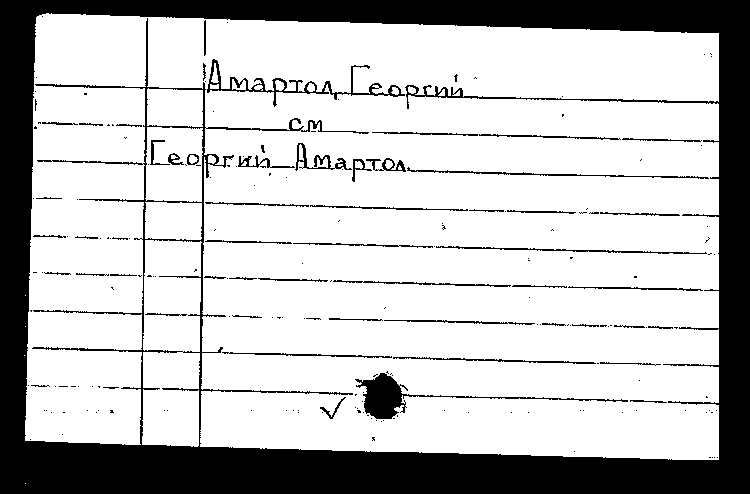 Амартол, Георгий
см
Георгий Амартол.